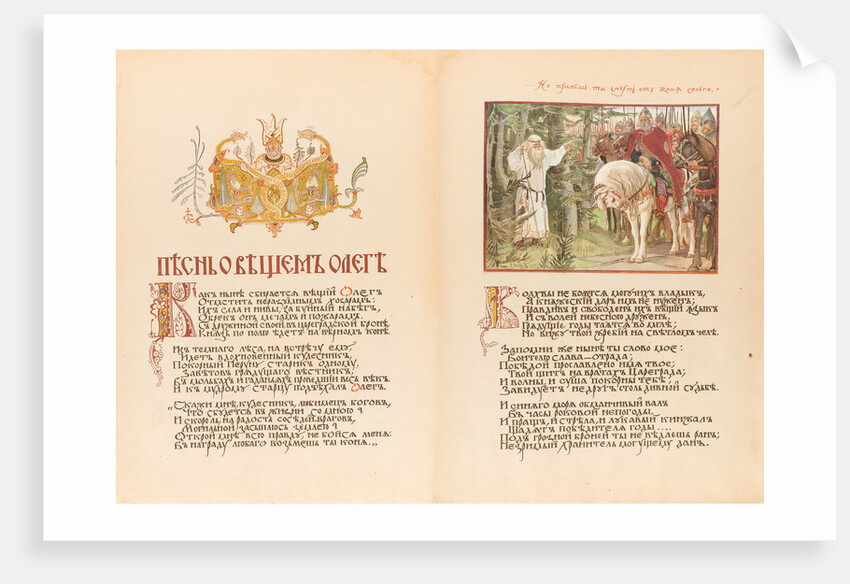 Пѣснь о вѣщемъ Олегѣ
Какъ нынѣ сбирается вѣщій Олегъ
Отмстить неразумнымъ хозарамъ:
Ихъ села и нивы, за буйный набѣгъ,
Обрекъ онъ мечамъ и пожарамъ.
Съ дружиной своей, въ цареградской бронѣ,
Князь по полю ѣдетъ на вѣрномъ конѣ.
Изъ темнаго лѣса, на встрѣчу ему,
Идетъ вдохновенный кудесникъ,
Покорный Перуну старикъ одному,
Завѣтовъ грядущаго вѣстникъ,
Въ мольбахъ и гаданьяхъ проведшій весь вѣкъ.
И къ мудрому старцу подъѣхалъ Олегъ.
„Скажи мнѣ, кудесникъ, любимецъ боговъ,
Что сбудется въ жизни со мною?
И скоро-ль, на радость сосѣдей-враговъ,
Могильной засыплюсь землею?
Открой мнѣ всю правду, не бойся меня:
Въ награду любаго возьмешь ты коня.„
— Но примешь ты смерть отъ коня своего. —
Волхвы не боятся могучихъ владыкъ,
А княжескій даръ имъ не нуженъ;
Правдивъ и свободенъ ихъ вѣщій языкъ
И съ волей небесною друженъ.
Грядущіе годы таятся во мглѣ;
Но вижу твой жребій на свѣтломъ челѣ.
Запомни же нынѣ ты слово мое:
Воителю слава — отрада;
Побѣдой прославлено имя твое;
Твой щитъ на вратахъ Цареграда;
И волны, и суша покорны тебѣ;
Завидуетъ недругъ столь дивной судьбѣ.
И синяго моря обманчивый валъ
Въ часы роковой непогоды,
И пращъ, и стрѣла, и лукавый кинжалъ
Щадятъ побѣдителя годы....
Подъ грозной броней ты не вѣдаешь ранъ;
Незримый хранитель могущему данъ.